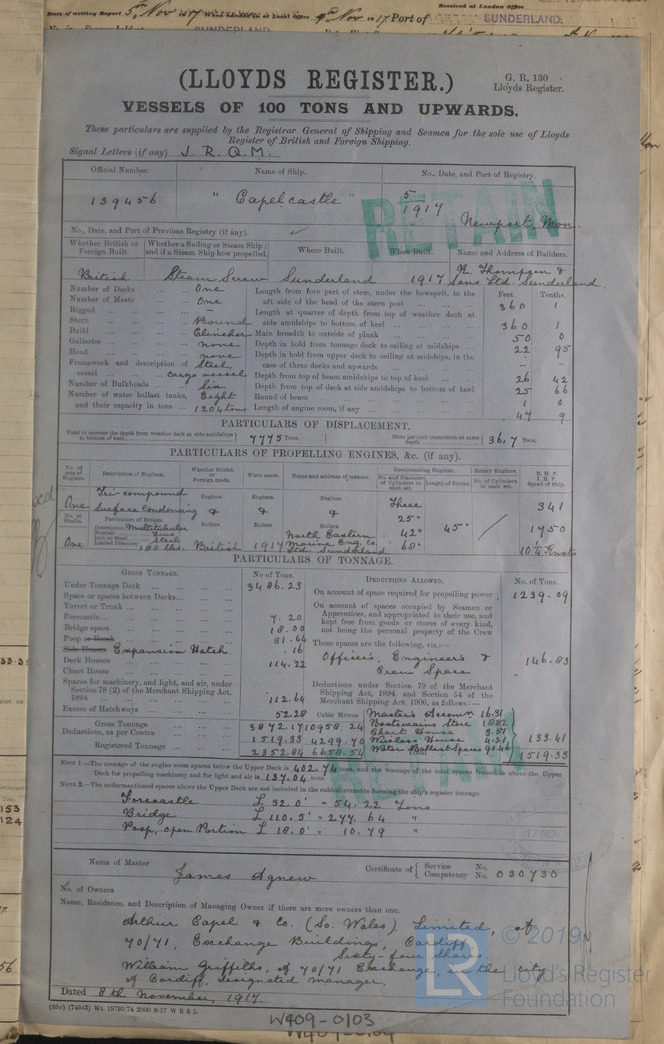 Date of writing Report 5th Nov 1917 When handed in at Local Office 9th Nov 1917 Port of SUNDERLAND.
Received at London Office
(LLOYDS REGISTER.)
G. R. 130
Lloyds Register.
VESSELS OF 100 TONS AND UPWARDS.
These particulars are supplied by the Registrar General of Shipping and Seamen for the sole use of Lloyds
Register of British and Foreign Shipping.
Signal Letters (if any) J. R. Q. M.
Official Number. Name of Ship. No., Date, and Port of Registry.
139456 "Capelcastle" 5/1917 Newport, Mon.
RETAIN
No., Date, and Port of Previous Registry (if any).
Whether British or Foreign Built. Whether a Sailing or Steam Ship; and if a Steam Ship how propelled. Where Built. When Built. Name and Address of Builders.
British Steam Screw Sunderland 1917 R. Thompson & Sons Ltd. Sunderland
Number of Decks One
Number of Masts One
Rigged –
Stern Round
Build Clencher
Galleries none
Head none
Framework and description of vessel Steel, cargo vessel
Number of Bulkheads Six
Number of water ballast tanks, Eight
and their capacity in tons 1204 tons
Feet. Tenths.
Length from fore part of stem, under the bowsprit, to the aft side of the head of the stern post 360 1
Length at quarter of depth from top of weather deck at side amidships to bottom of keel 360 1
Main breadth to outside of plank 50 0
Depth in hold from tonnage deck to ceiling at midships 22 95
Depth in hold from upper deck to ceiling at midships, in the case of three decks and upwards – –
Depth from top of beam amidships to top of keel 26 42
Depth from top of deck at side amidships to bottom of keel 25 66
Round of beam 1 0
Length of engine room, if any 47 9
PARTICULARS OF DISPLACEMENT.
Total to quarter the depth from weather deck at side amidships to bottom of keel 7775 Tons. Ditto per inch immersion at same depth 36.7 Tons.
PARTICULARS OF PROPELLING ENGINES, &c. (if any).
No. of sets of Engines. Description of Engines. Whether British or Foreign made. When made. Name and address of makers. Reciprocating Engines. Rotary Engines. N. H. P. I. H. P. Speed of Ship.
No. and Diameter of Cylinders in each set. Length of Stroke. No. of Cylinders in each set.
One Tri-compound Surface Condensing
Engines. Engines. Engines.
& & &
Three 25" 42" 68" 45"
341
1750
10 1/4 Knots
No. of Boilers. Particulars of Boilers.
Boilers Boilers Boilers
Description Multitubular
Iron or Steel Steel
One 180 lbs. British 1917 North Eastern Marine Eng. Co. Ltd. Sunderland
PARTICULARS OF TONNAGE.
GROSS TONNAGE. No. of Tons.
Under Tonnage Deck 3486.23
Space or spaces between Decks
Turret or Trunk
Forecastle 7.20
Bridge space 18.00
Poop or Break 81.44
Side Houses Expansion Hatch .16
Deck Houses 114.22
Chart House
Spaces for machinery, and light, and air, under Section 78 (2) of the Merchant Shipping Act, 1894 112.64
Excess of Hatchways 52.28 Cubic Metres
Gross Tonnage 3872.17 10958.24
Deductions, as per Contra 1519.33 4299.70
Registered Tonnage 2352.84 6658.54
DEDUCTIONS ALLOWED. No. of Tons.
On account of space required for propelling power 1239.09
On account of spaces occupied by Seamen or Apprentices, and appropriated to their use, and kept free from goods or stores of every kind, not being the personal property of the Crew
These spaces are the following, viz:—
Officers, Engineers & Crew Space 146.83
Deductions under Section 79 of the Merchant Shipping Act, 1894, and Section 54 of the Merchant Shipping Act, 1906, as follows:—
Master's Accomn 16.31
Boatswains Store 18.82
Chart House 3.51
Wireless House 4.31
Water Ballast Spaces 90.46
133.41
Total 1519.33
NOTE 1.—The tonnage of the engine room spaces below the Upper Deck is 402.74 tons, and the tonnage of the total spaces framed in above the Upper
Deck for propelling machinery and for light and air is 137.04 tons.
NOTE 2.—The undermentioned spaces above the Upper Deck are not included in the cubical contents forming the ship's register tonnage.
Forecastle L 32.0' = 54.22 Tons
Bridge L 110.5' = 277.64 "
Poop, open Portion L 18.0' = 10.79 "
RETAIN
Name of Master James Agnew Certificate of { Service No. Competency No. 030730
No. of Owners
Name, Residence, and Description of Managing Owner if there are more owners than one.
Arthur Capel & Co. (So. Wales) Limited, of
70/71, Exchange Buildings, Cardiff
Sixty-four Shares.
William Griffiths, of 70/71 Exchange, in the city
of Cardiff, designated manager.
Dated 8th November, 1917.
(83v) (74343) Wt. 19791/74 2000 8-17 W B & L
W409-0103
© 2019
Lloyd's Register
Foundation